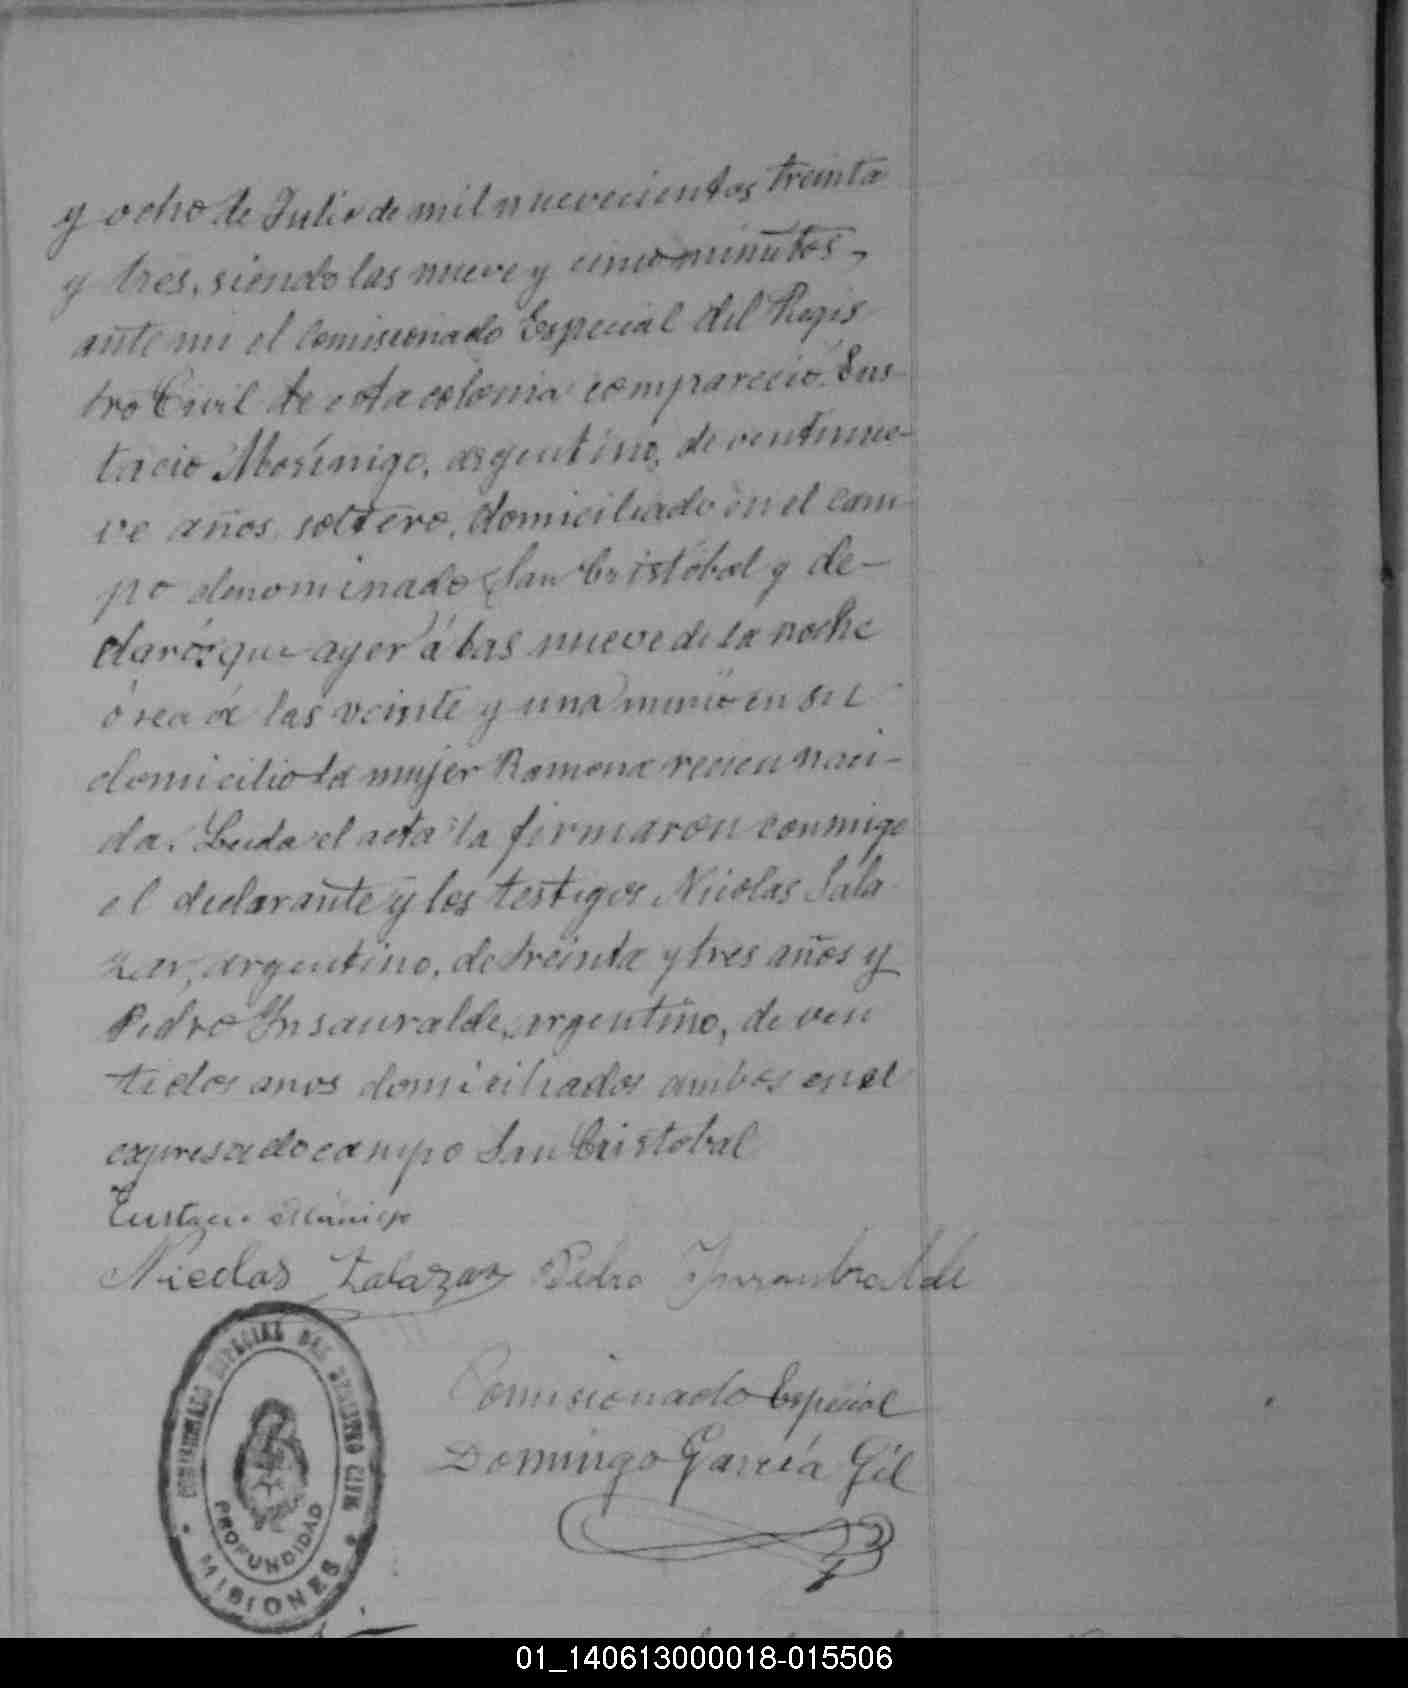 y ocho de Julio de mil nuevecientos treinta
y tres, siendo las nueve y cinco minutos,
ante mi el Comisionado Especial del Regis
tro Civil de esta colonia compareció Eus
tacio Morínigo, argentino, de ventinue-
ve años, soltero, domiciliado en el cam-
po denominado San Cristóbal y de-
claró: que ayer á las nueve de la noche
ó sea á las veinte y una murió en su
domicilio la mujer Ramona recien naci-
da. Leida el acta la firmaron conmigo
el declarante y los testigos Nicolas Sala
zar, argentino, de treinta y tres años y
Pedro Ynsauralde, argentino, de ven
tidos anos domiciliados ambos en el
expresado campo San Cristobal
Eustacio
Nicolas Zalazar Pedro
Comisionado Especial
Domingo García Gil
COMISIONADO ESPECIAL DEL REGISTRO CIVIL
PROFUNDIDAD
MISIONES
01_140613000018-015506